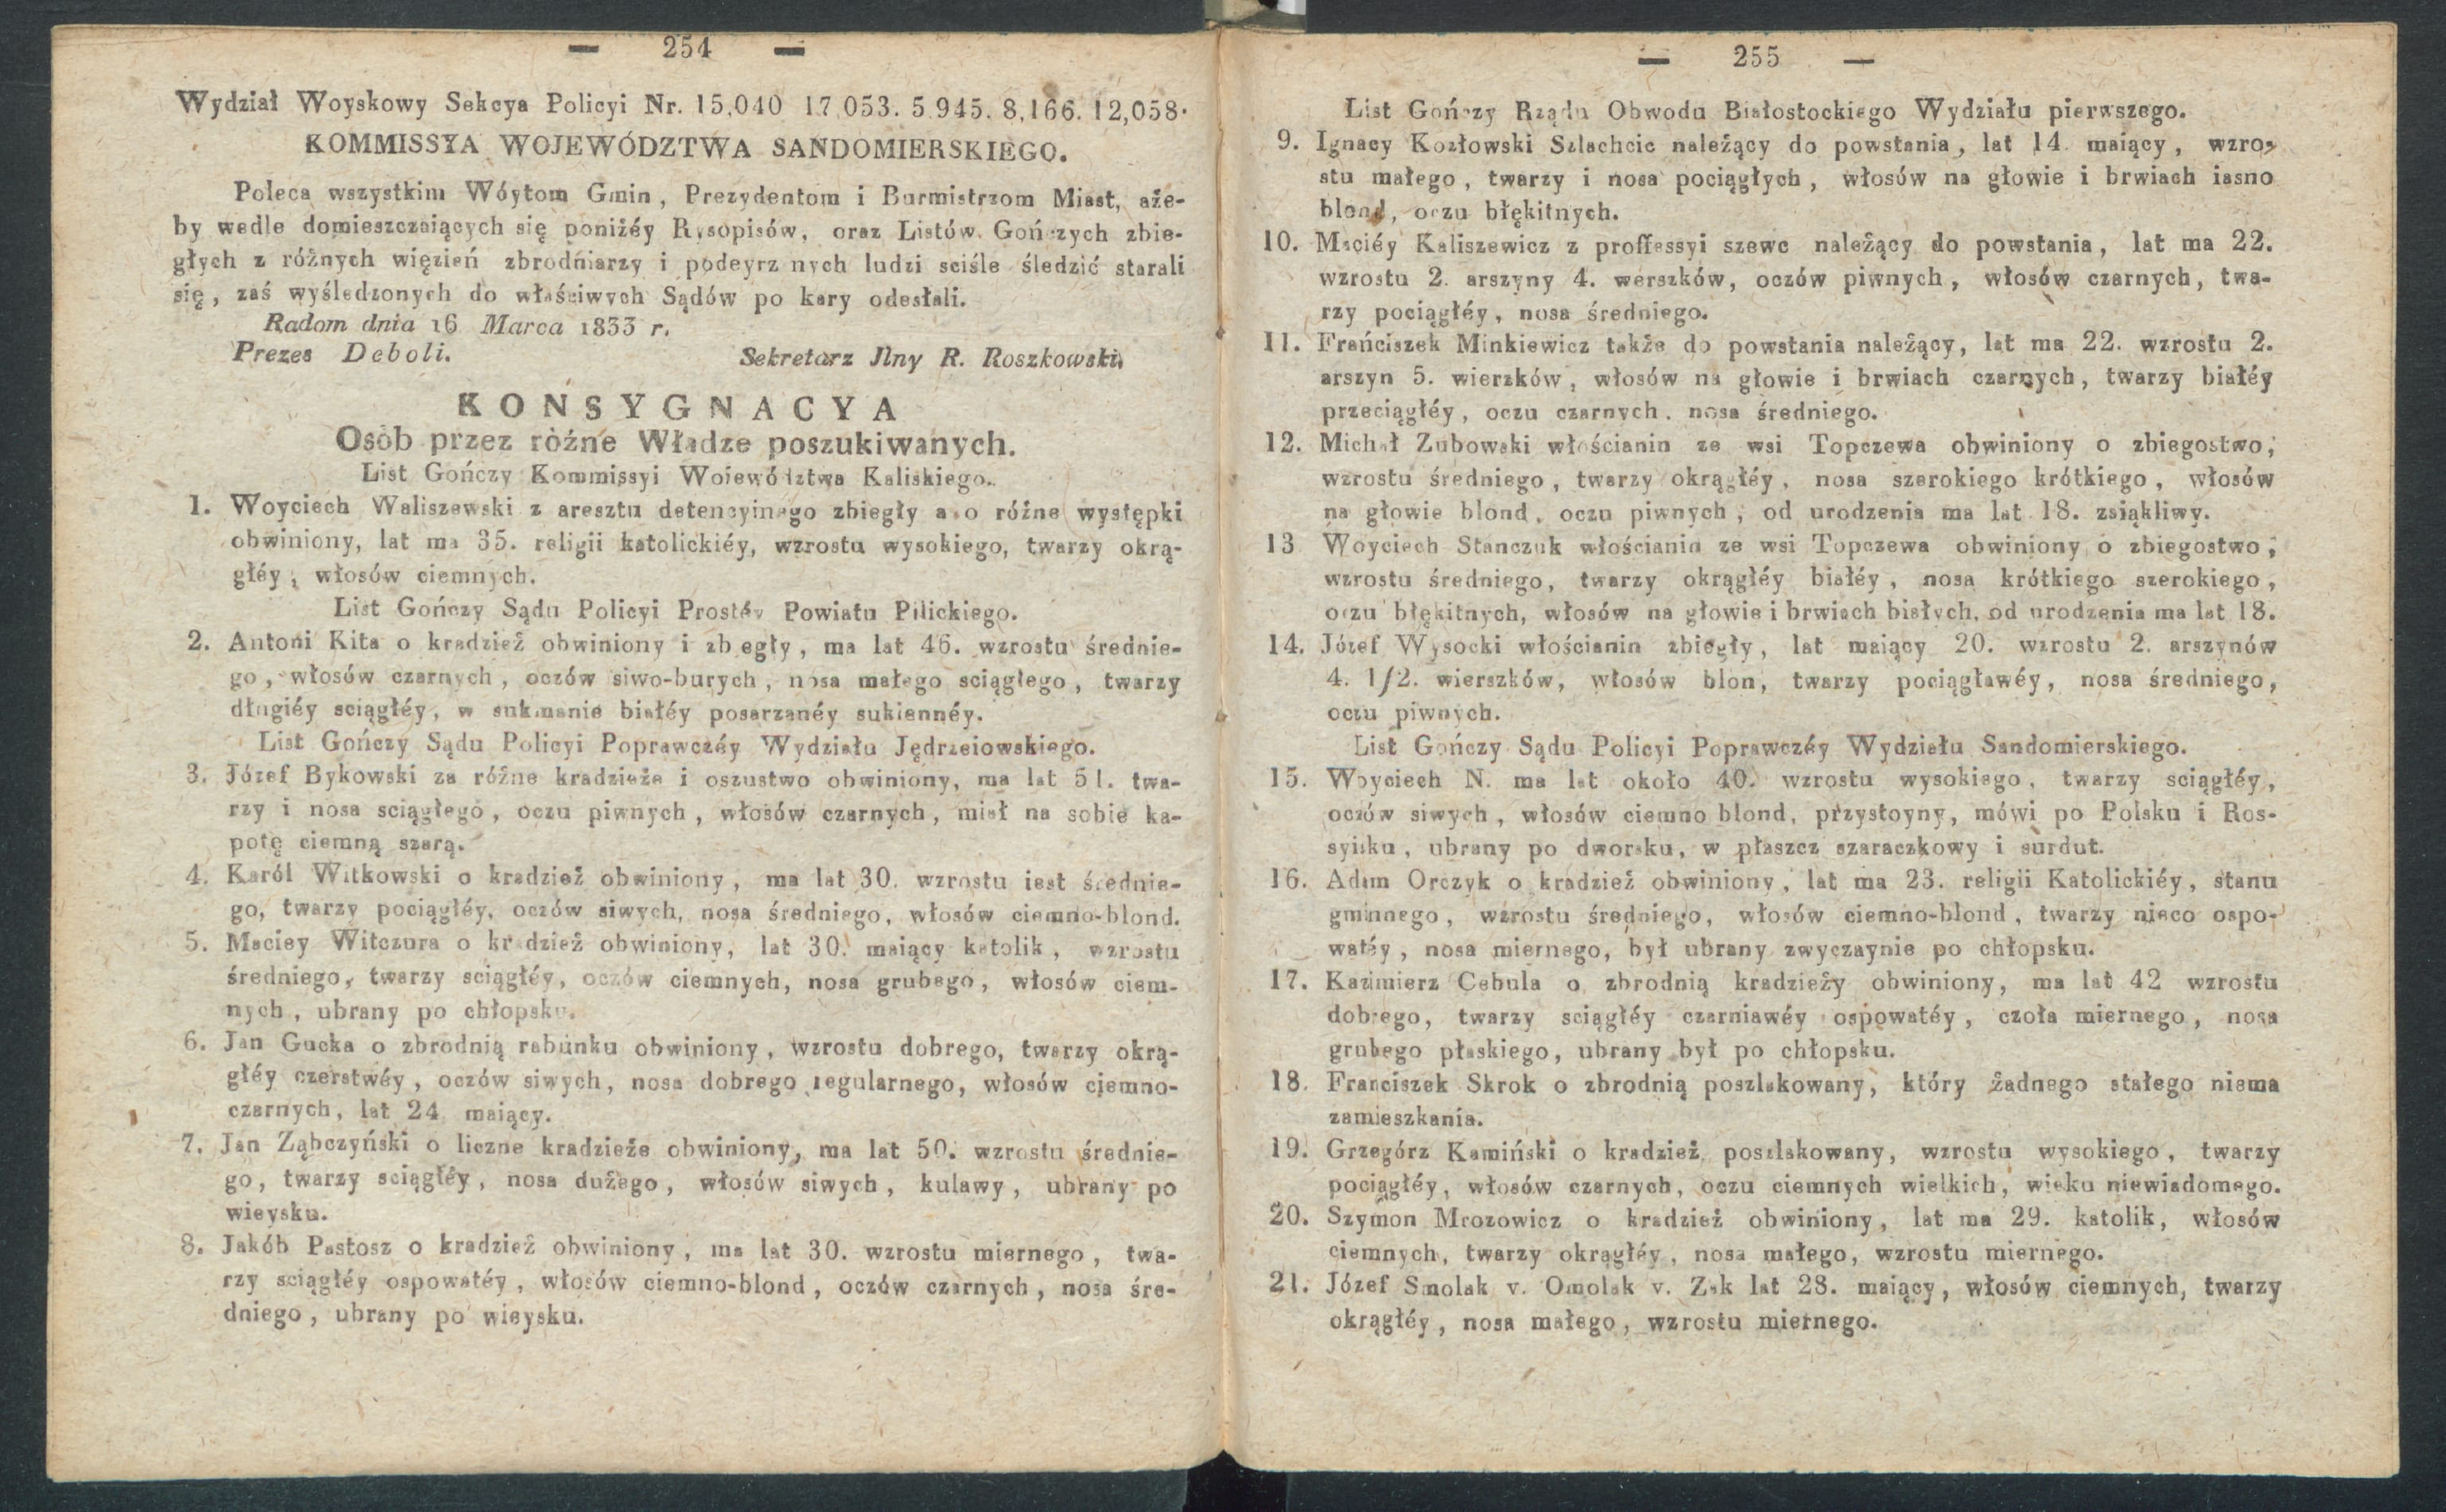 — 254 —
Wydział Woyskowy Sekcya Policyi Nr. 15,040 17,053. 5,945. 8,166. 12,058.
KOMMISSYA WOJEWÓDZTWA SANDOMIERSKIEGO.
Poleca wszystkim Wóytom Gmin, Prezydentom i Burmistrzom Miast, aże-
by wedle domieszczaiących się poniżéy Rysopisów, oraz Listów Gończych zbie-
głych z różnych więzień zbrodniarzy i podeyrzanych ludzi sciśle śledzić starali
się, zaś wyśledzonych do właściwych Sądów po kary odesłali.
Radom dnia 16 Marca 1833 r.
Prezes Deboli.
Sekretarz Jlny R. Roszkowski.
KONSYGNACYA
Osób przez różne Władze poszukiwanych.
List Gończy Kommissyi Woiewództwa Kaliskiego.
1. Woyciech Waliszewski z aresztu detencyinego zbiegły a o różne występki
obwiniony, lat ma 35. religii katolickiéy, wzrostu wysokiego, twarzy okrą-
głéy, włosów ciemnych.
List Gończy Sądu Policyi Prostéy Powiatu Pilickiego.
2. Antoni Kita o kradzież obwiniony i zbiegły, ma lat 46. wzrostu średnie-
go, włosów czarnych, oczów siwo-burych, nosa małego sciągłego, twarzy
długiéy sciągłéy, w sukmanie białéy posarzanéy sukiennéy.
List Gończy Sądu Policyi Poprawczéy Wydziału Jędrzeiowskiego.
3. Józef Bykowski za różne kradzieże i oszustwo obwiniony, ma lat 51. twa-
rzy i nosa sciągłego, oczu piwnych, włosów czarnych, miał na sobie ka-
potę ciemną szarą.
4. Karól Witkowski o kradzież obwiniony, ma lat 30. wzrostu iest średnie-
go, twarzy pociągłéy, oczów siwych, nosa średniego, włosów ciemno-blond.
5. Maciey Witczura o kradzież obwiniony, lat 30. maiący katolik, wzrostu
średniego, twarzy sciągłéy, oczów ciemnych, nosa grubego, włosów ciem-
nych, ubrany po chłopsku.
6. Jan Gucka o zbrodnią rabunku obwiniony, wzrostu dobrego, twarzy okrą-
głéy czerstwéy, oczów siwych, nosa dobrego regularnego, włosów ciemno-
czarnych, lat 24 maiący.
7. Jan Ząbczyński o liczne kradzieże obwiniony, ma lat 50. wzrostu średnie-
go, twarzy sciągłéy, nosa dużego, włosów siwych, kulawy, ubrany po
wieysku.
8. Jakób Pastosz o kradzież obwiniony, ma lat 30. wzrostu miernego, twa-
rzy sciągłéy ospowatéy, włosów ciemno-blond, oczów czarnych, nosa śre-
dniego, ubrany po wieysku.
— 255 —
List Gończy Rządu Obwodu Białostockiego Wydziału pierwszego.
9. Ignacy Kozłowski Szlachcic należący do powstania, lat 14 maiący, wzro-
stu małego, twarzy i nosa pociągłych, włosów na głowie i brwiach iasno
blond, oczu błękitnych.
10. Maciéy Kaliszewicz z proffessyi szewc należący do powstania, lat ma 22.
wzrostu 2. arszyny 4. werszków, oczów piwnych, włosów czarnych, twa-
rzy pociągłéy, nosa średniego.
11. Frańciszek Minkiewicz także do powstania należący, lat ma 22. wzrostu 2.
arszyn 5. wierzków, włosów na głowie i brwiach czarnych, twarzy białéy
przeciągłéy, oczu czarnych, nosa średniego.
12. Michał Zubowski włościanin ze wsi Topczewa obwiniony o zbiegostwo,
wzrostu średniego, twarzy okrągłéy, nosa szerokiego krótkiego, włosów
na głowie blond, oczu piwnych, od urodzenia ma lat 18. zsiąkliwy.
13 Woyciech Stanczuk włościanin ze wsi Topczewa obwiniony o zbiegostwo,
wzrostu średniego, twarzy okrągłéy białéy, nosa krótkiego szerokiego,
oczu błękitnych, włosów na głowie i brwiach białych, od urodzenia ma lat 18.
14. Józef Wysocki włościanin zbiegły, lat maiący 20. wzrostu 2. arszynów
4. 1/2. wierszków, włosów blon, twarzy pociągławéy, nosa średniego,
oczu piwnych.
List Gończy Sądu Policyi Poprawczéy Wydziału Sandomierskiego.
15. Woyciech N. ma lat około 40. wzrostu wysokiego, twarzy sciągłéy,
oczów siwych, włosów ciemno blond, przystoyny, mówi po Polsku i Ros-
syisku, ubrany po dworsku, w płaszcz szaraczkowy i surdut.
16. Adam Orczyk o kradzież obwiniony, lat ma 23. religii Katolickiéy, stanu
gminnego, wzrostu średniego, włosów ciemno-blond, twarzy nieco ospo-
watéy, nosa miernego, był ubrany zwyczaynie po chłopsku.
17. Kazimierz Cebula o zbrodnią kradzieży obwiniony, ma lat 42 wzrostu
dobrego, twarzy sciągłéy czarniawéy ospowatéy, czoła miernego, nosa
grubego płaskiego, ubrany był po chłopsku.
18. Franciszek Skrok o zbrodnią poszlakowany, który żadnego stałego niema
zamieszkania.
19. Grzegórz Kamiński o kradzież poszlakowany, wzrostu wysokiego, twarzy
pociągłéy, włosów czarnych, oczu ciemnych wielkich, wieku niewiadomego.
20. Szymon Mrozowicz o kradzież obwiniony, lat ma 29. katolik, włosów
ciemnych, twarzy okrągłéy, nosa małego, wzrostu miernego.
21. Józef Smolak v. Omolak v. Zak lat 28. maiący, włosów ciemnych, twarzy
okrągłéy, nosa małego, wzrostu miernego.